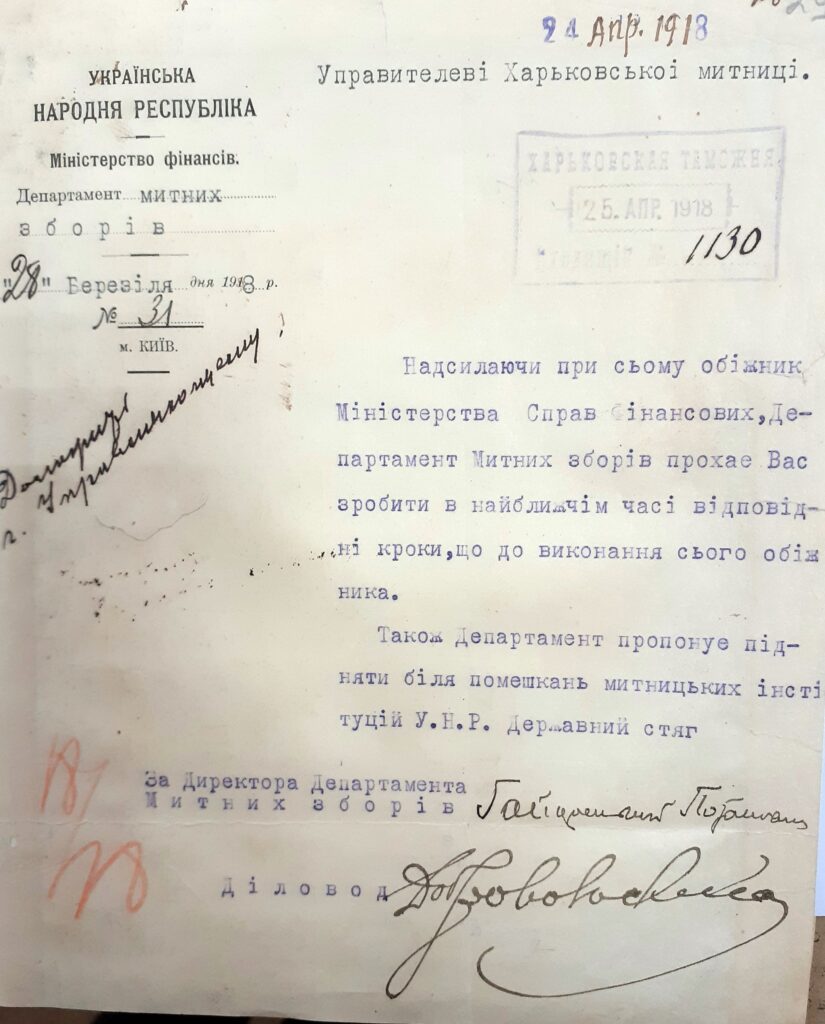 24 Апр. 1918
УКРАЇНСЬКА
НАРОДНЯ РЕСПУБЛІКА
Міністерство фінансів.
Департамент митних
зборів
"28" Березіля дня 1918 р.
№ 31
м. КИЇВ.
Управителеві Харьковської митниці.
ХАРЬКОВСКАЯ ТАМОЖНЯ
25. АПР. 1918
№ 1130
г. Управляющему!
Надсилаючи при сьому обіжник
Міністерства Справ Фінансових,Де-
партамент Митних зборів прохає Вас
зробити в найближчім часі відповід-
ні кроки,що до виконання сього обіж
ника.
Також Департамент пропонує під-
няти біля помешкань митницьких інсті
туцій У.Н.Р. Державний стяг
За Директора Департамента
Митних зборів
Діловод